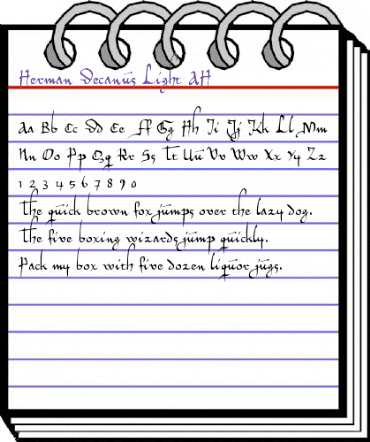 Herman Decanus Light AH
Aa Bb Cc Dd Ee Ff Gg Hh Ii Jj Kk Ll Mm
Nn Oo Pp Qq Rr Ss Tt Uu Vv Ww Xx Yy Zz
1 2 3 4 5 6 7 8 9 0
The quick brown fox jumps over the lazy dog.
The five boxing wizards jump quickly.
Pack my box with five dozen liquor jugs.